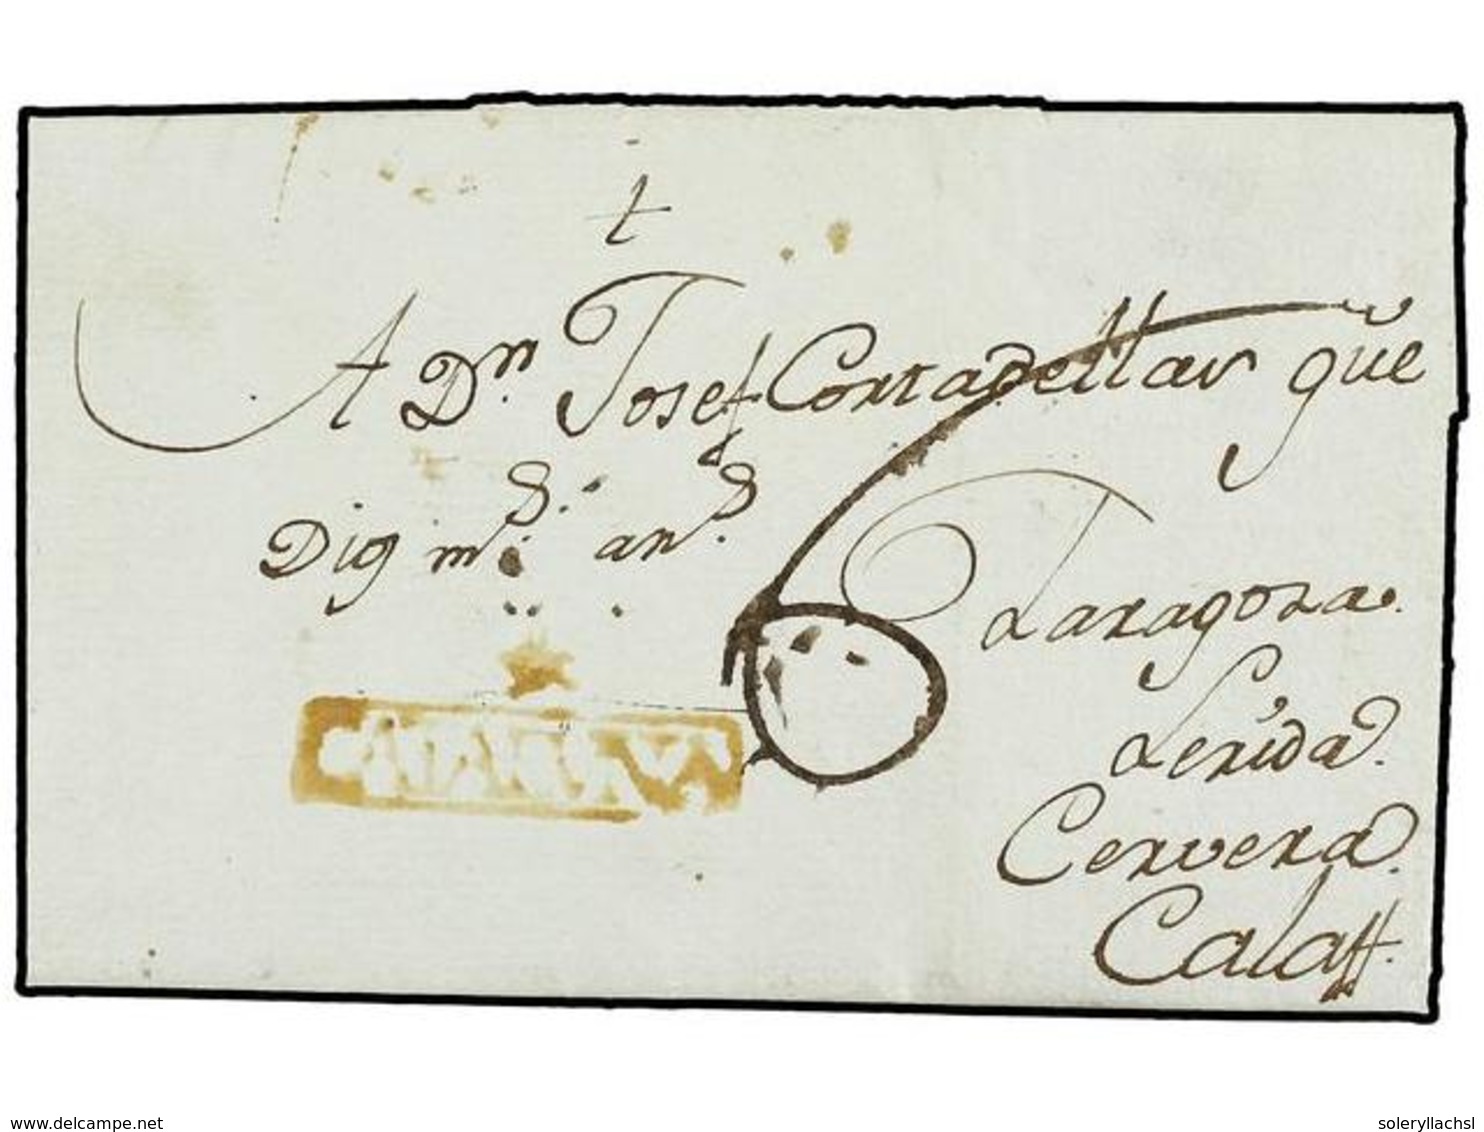 t
A Dn. Josef Cortadellas que
Dios ms. ans.
Zaragoza.
Lerida.
Cervera.
Calaff.
6
delcampe.net
soleryllachsl